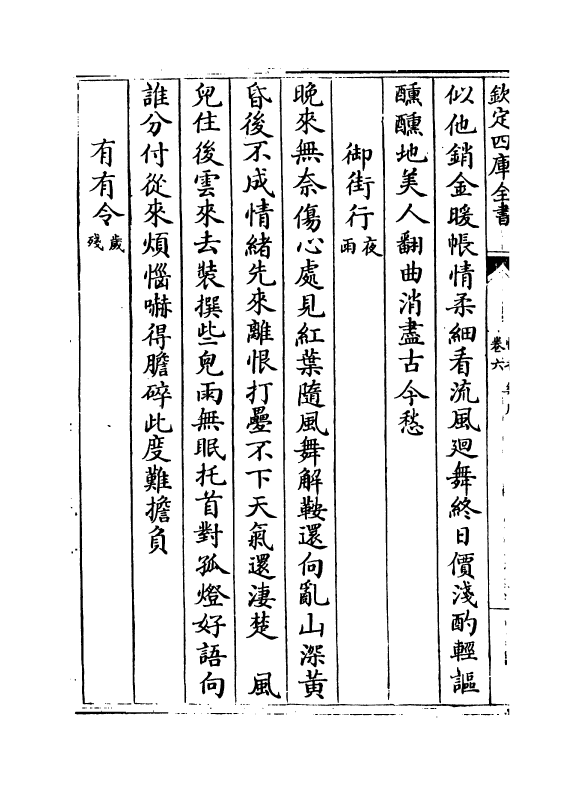 欽定四庫全書
卷六
似他銷金暖帳情柔細看流風廻舞終日價淺酌輕謳
醺醺地美人翻曲消盡古今愁
御街行夜雨
晚來無奈傷心處見紅葉隨風舞解鞍還向亂山深黄
昏後不成情緒先來離恨打疊不下天氣還淒楚 風
兒住後雲來去裝撰些兒雨無眠托首對孤燈好語向
誰分付從來煩惱嚇得膽碎此度難擔負
有有令歲殘